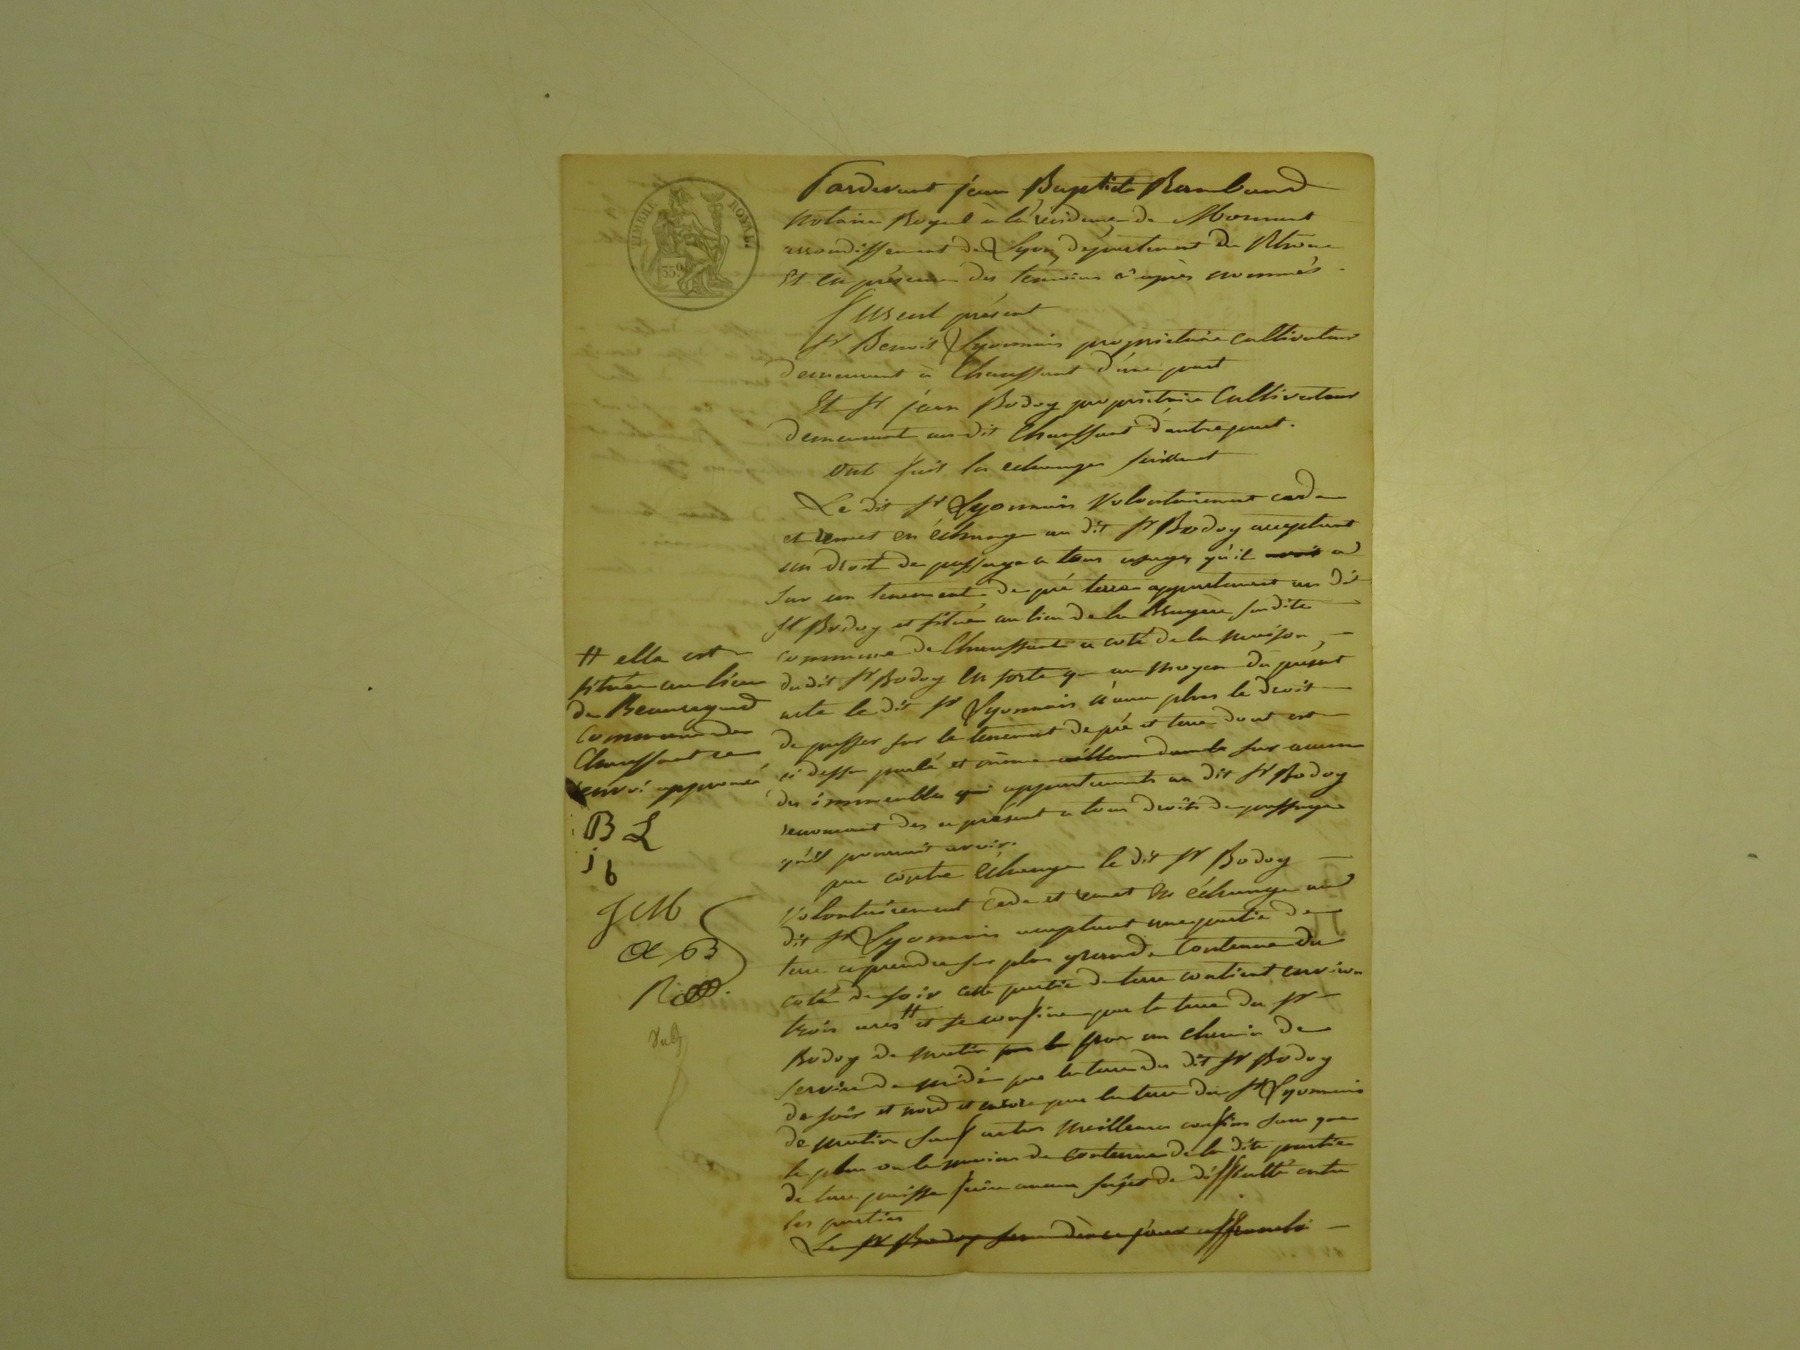 TIMBRE ROYAL
35c
Pardevant jean Baptiste Rambaud
Notaire Royal à la résidence de Mornant
arrondissement de Lyon, département du Rhône
Et en présence des temoins ci après nommés.
furent présent
Sr Benoit Lyonnais propriétaire cultivateur
demeurant à Chaussant d'une part
Et Sr jean Bodoy propriétaire Cultivateur
demeurant au dit Chaussant d'autre part.
Ont fait les echanges suivant
Le dit Sr Lyonnais volontairement cede
et remet en échange au dit Sr Bodoy acceptant
un droit de passage a tous usages qu'il avoit a
sur un tenement de pré terre appartenant au dit
Sr Bodoy et situé au lieu de la Bruyère susdite
commune de Chaussant a coté de la maison
du dit Sr Bodoy en sorte qu au moyen du présent
acte le dit Sr Lyonnais n'aura plus le droit
de passer sur le tenement de pré et terre dont est
ci dessu parlé et même sur aucun
des immeubles qui appartenants au dit Sr Bodoy
renoncant des a présent a tous droits de passage
qu'il pourroit avoir.
par contre échange le dit Sr Bodoy
volontairement cede et remet en échange au
dit Sr Lyonnais acceptant une partie de
terre a prendre sur plus grande contenue du
coté de soir cette partie de terre contient environ
trois ares # et se confine par la terre du Sr
Bodoy de matin par le par un chemin de
service de midi par la terre du dit Sr Bodoy
de soir et nord et encore par la terre du Sr Lyonnais
de matin sauf autres meilleures confins sans que
le plus ou le moins de contenue de la dite partie
de terre puisse faire aucun sujet de difficulté entre
les parties
Le Sr Bodoy sera dès ce jour affranchi
# elle est
située au lieu
de Beauregard
commune de
Chaussant ce
renvoi approuvé
B L
j b
JCM